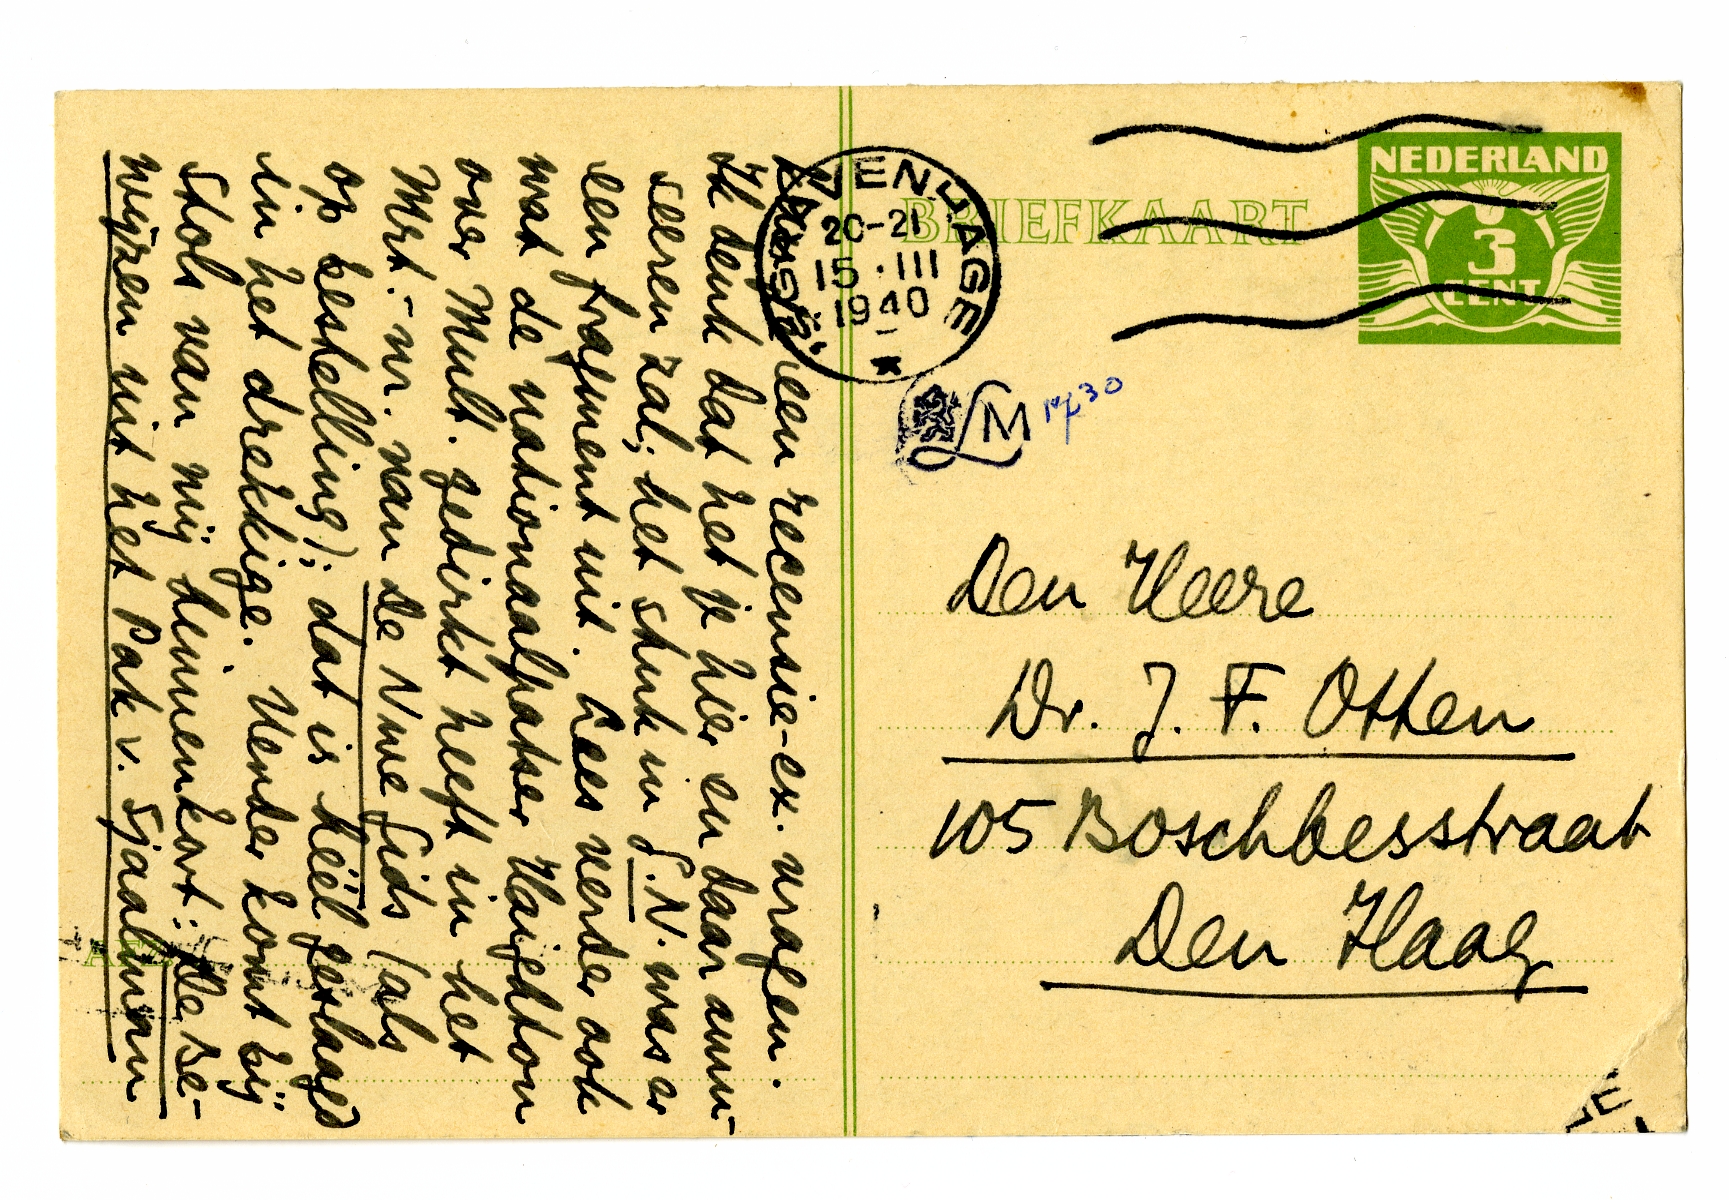 een recensie-ex. vragen.
Ik denk dat het je hier en daar amu-
seeren zal; het stuk in G.N. was er
een fragment uit. Lees verder ook
wat de nationaalpatser Haighton
over Mult. gedirkt heeft in het
Mrt.-nr. van De Nwe Gids (als
op bestelling); dat is héél geslaagd
in het drekkige. Verder komt bij
Stols van mij binnenkort: De Be-
wijzen uit het Pak v. Sjaalman.
'S GRAVENHAGE
20-21
15.III
1940
BRIEFKAART
NEDERLAND
3
CENT
LM
Den Heere
Dr. J. F. Otten
105 Boschbesstraat
Den Haag